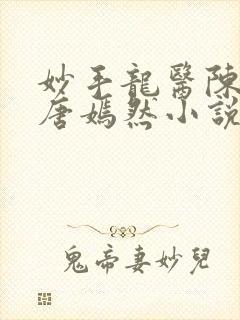 妙手龍醫陳
唐嫣然小說
鬼帝妻妙兒